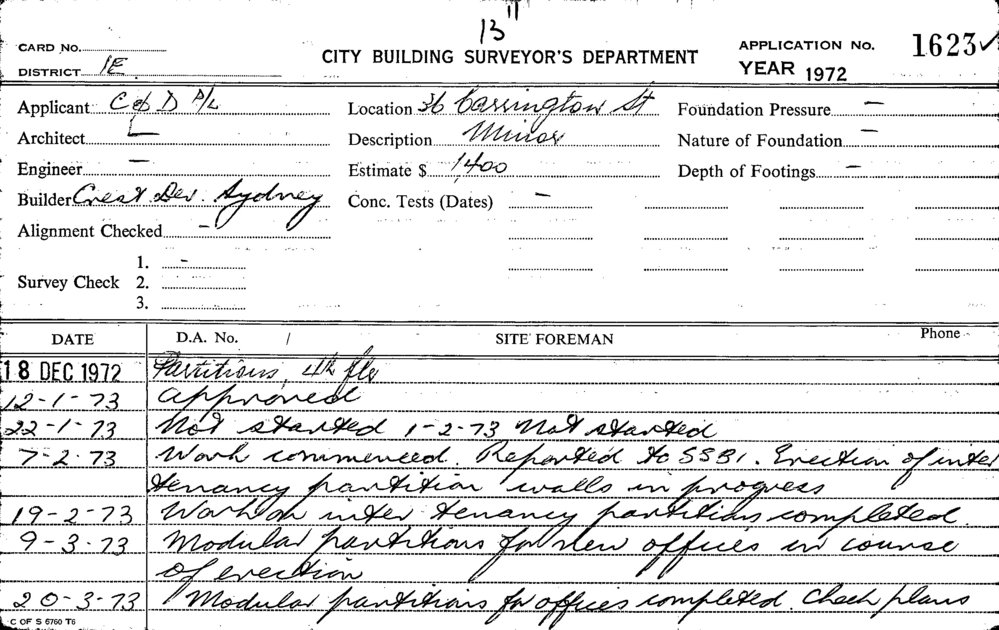 13 11
CARD NO.
CITY BUILDING SURVEYOR'S DEPARTMENT
APPLICATION No. 1623 ✓
DISTRICT 1E
YEAR 1972
Applicant C & D P/L
Location 36 Carrington St
Foundation Pressure —
Architect —
Description Minor
Nature of Foundation —
Engineer —
Estimate $ 1,400
Depth of Footings —
Builder Crest Dev. Sydney
Conc. Tests (Dates) —
Alignment Checked —
Survey Check 1. —
2.
3.
DATE D.A. No. / SITE FOREMAN Phone
18 DEC 1972 Partitions, 4th flr
12-1-73 Approved
22-1-73 Not started 1-2-73 Not started
7-2-73 Work commenced. Reported to SSB1. Erection of inter
tenancy partition walls in progress
19-2-73 Work on inter tenancy partitions completed.
9-3-73 Modular partitions for new offices in course
of erection
20-3-73 Modular partitions for offices completed. Check plans
C OF S 6760 T6